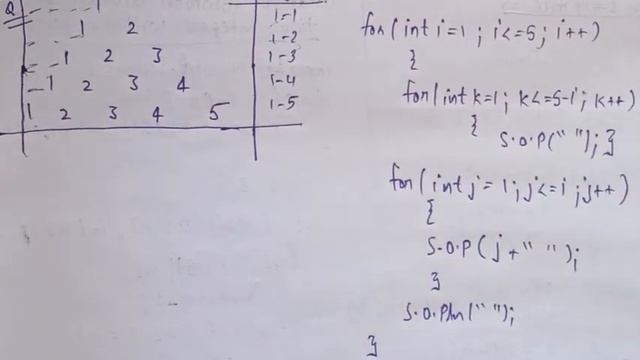 Q 1
1 2
1 2 3
1 2 3 4
1 2 3 4 5
1-1
1-2
1-3
1-4
1-5
for(int i=1 ; i<=5; i++)
{
for(int k=1; k<=5-i; k++)
{
S.O.P(" "); }
for(int j=1; j<=i; j++)
{
S.O.P(j+" ");
}
S.O.Pln(" ");
}